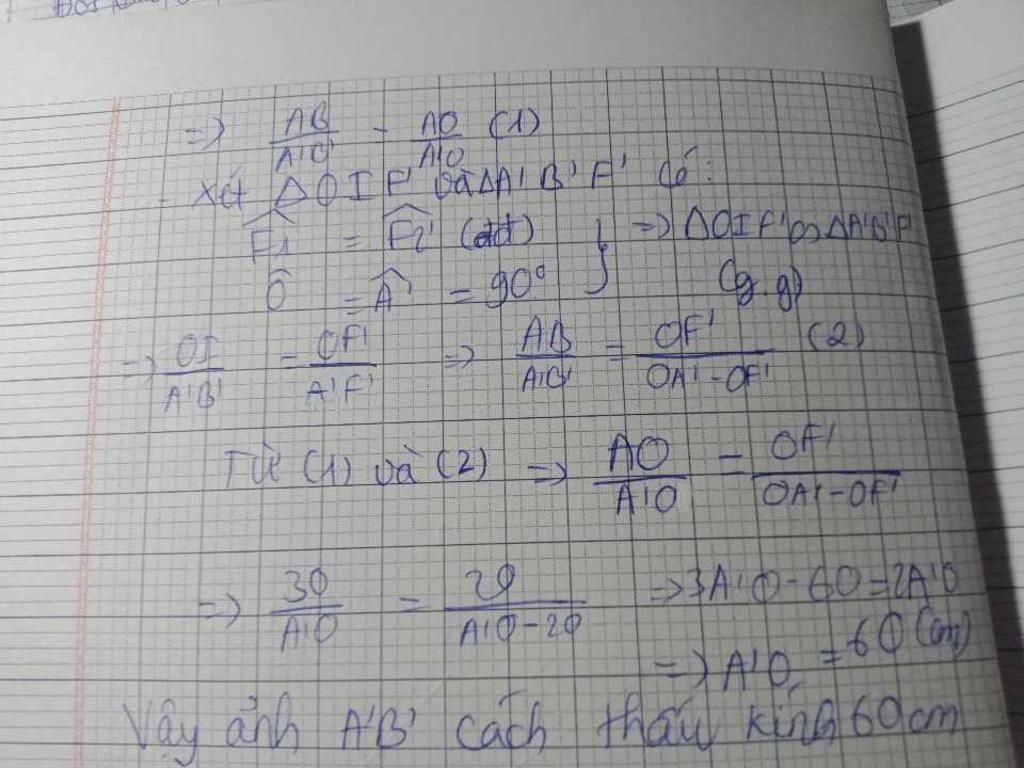 => AB/A'O' = AO/A'O (1)
- Xét ΔOIF' và ΔA'B'F' có:
F1 = F2' (đđ) } => ΔOIF' ∽ ΔA'B'F'
Ô = Â' = 90° (g.g)
=> OI/A'B' = OF'/A'F' => AB/A'B' = OF'/OA'-OF' (2)
Từ (1) và (2) => AO/A'O = OF'/OA'-OF'
=> 30/A'O = 20/A'O-20 => 3A'O-60=2A'O
=> A'O = 60 (cm)
Vậy ảnh A'B' cách thấu kính 60cm